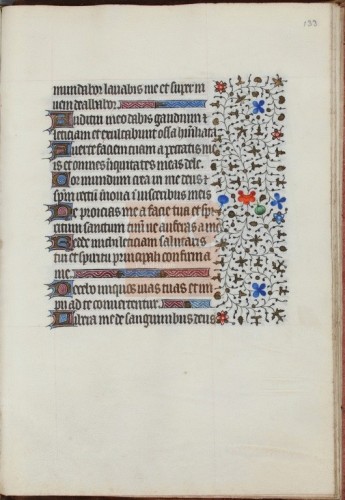 133
mundabor lavabis me et super ni
vem dealbabor
Auditui meo dabis gaudium &
leticiam et exultabunt ossa humiliata
Averte faciem tuam a peccatis me
is et omnes iniquitates meas dele
Cor mundum crea in me deus &
spiritum
De proicias me a facie tua et spi
ritum sanctum tuum ne auferas a me
Redde michi leticiam salutaris
tui et spiritu principali confirma
me
Docebo iniquos vias tuas et im
pii ad te convertentur
Libera me de sanguinibus deus